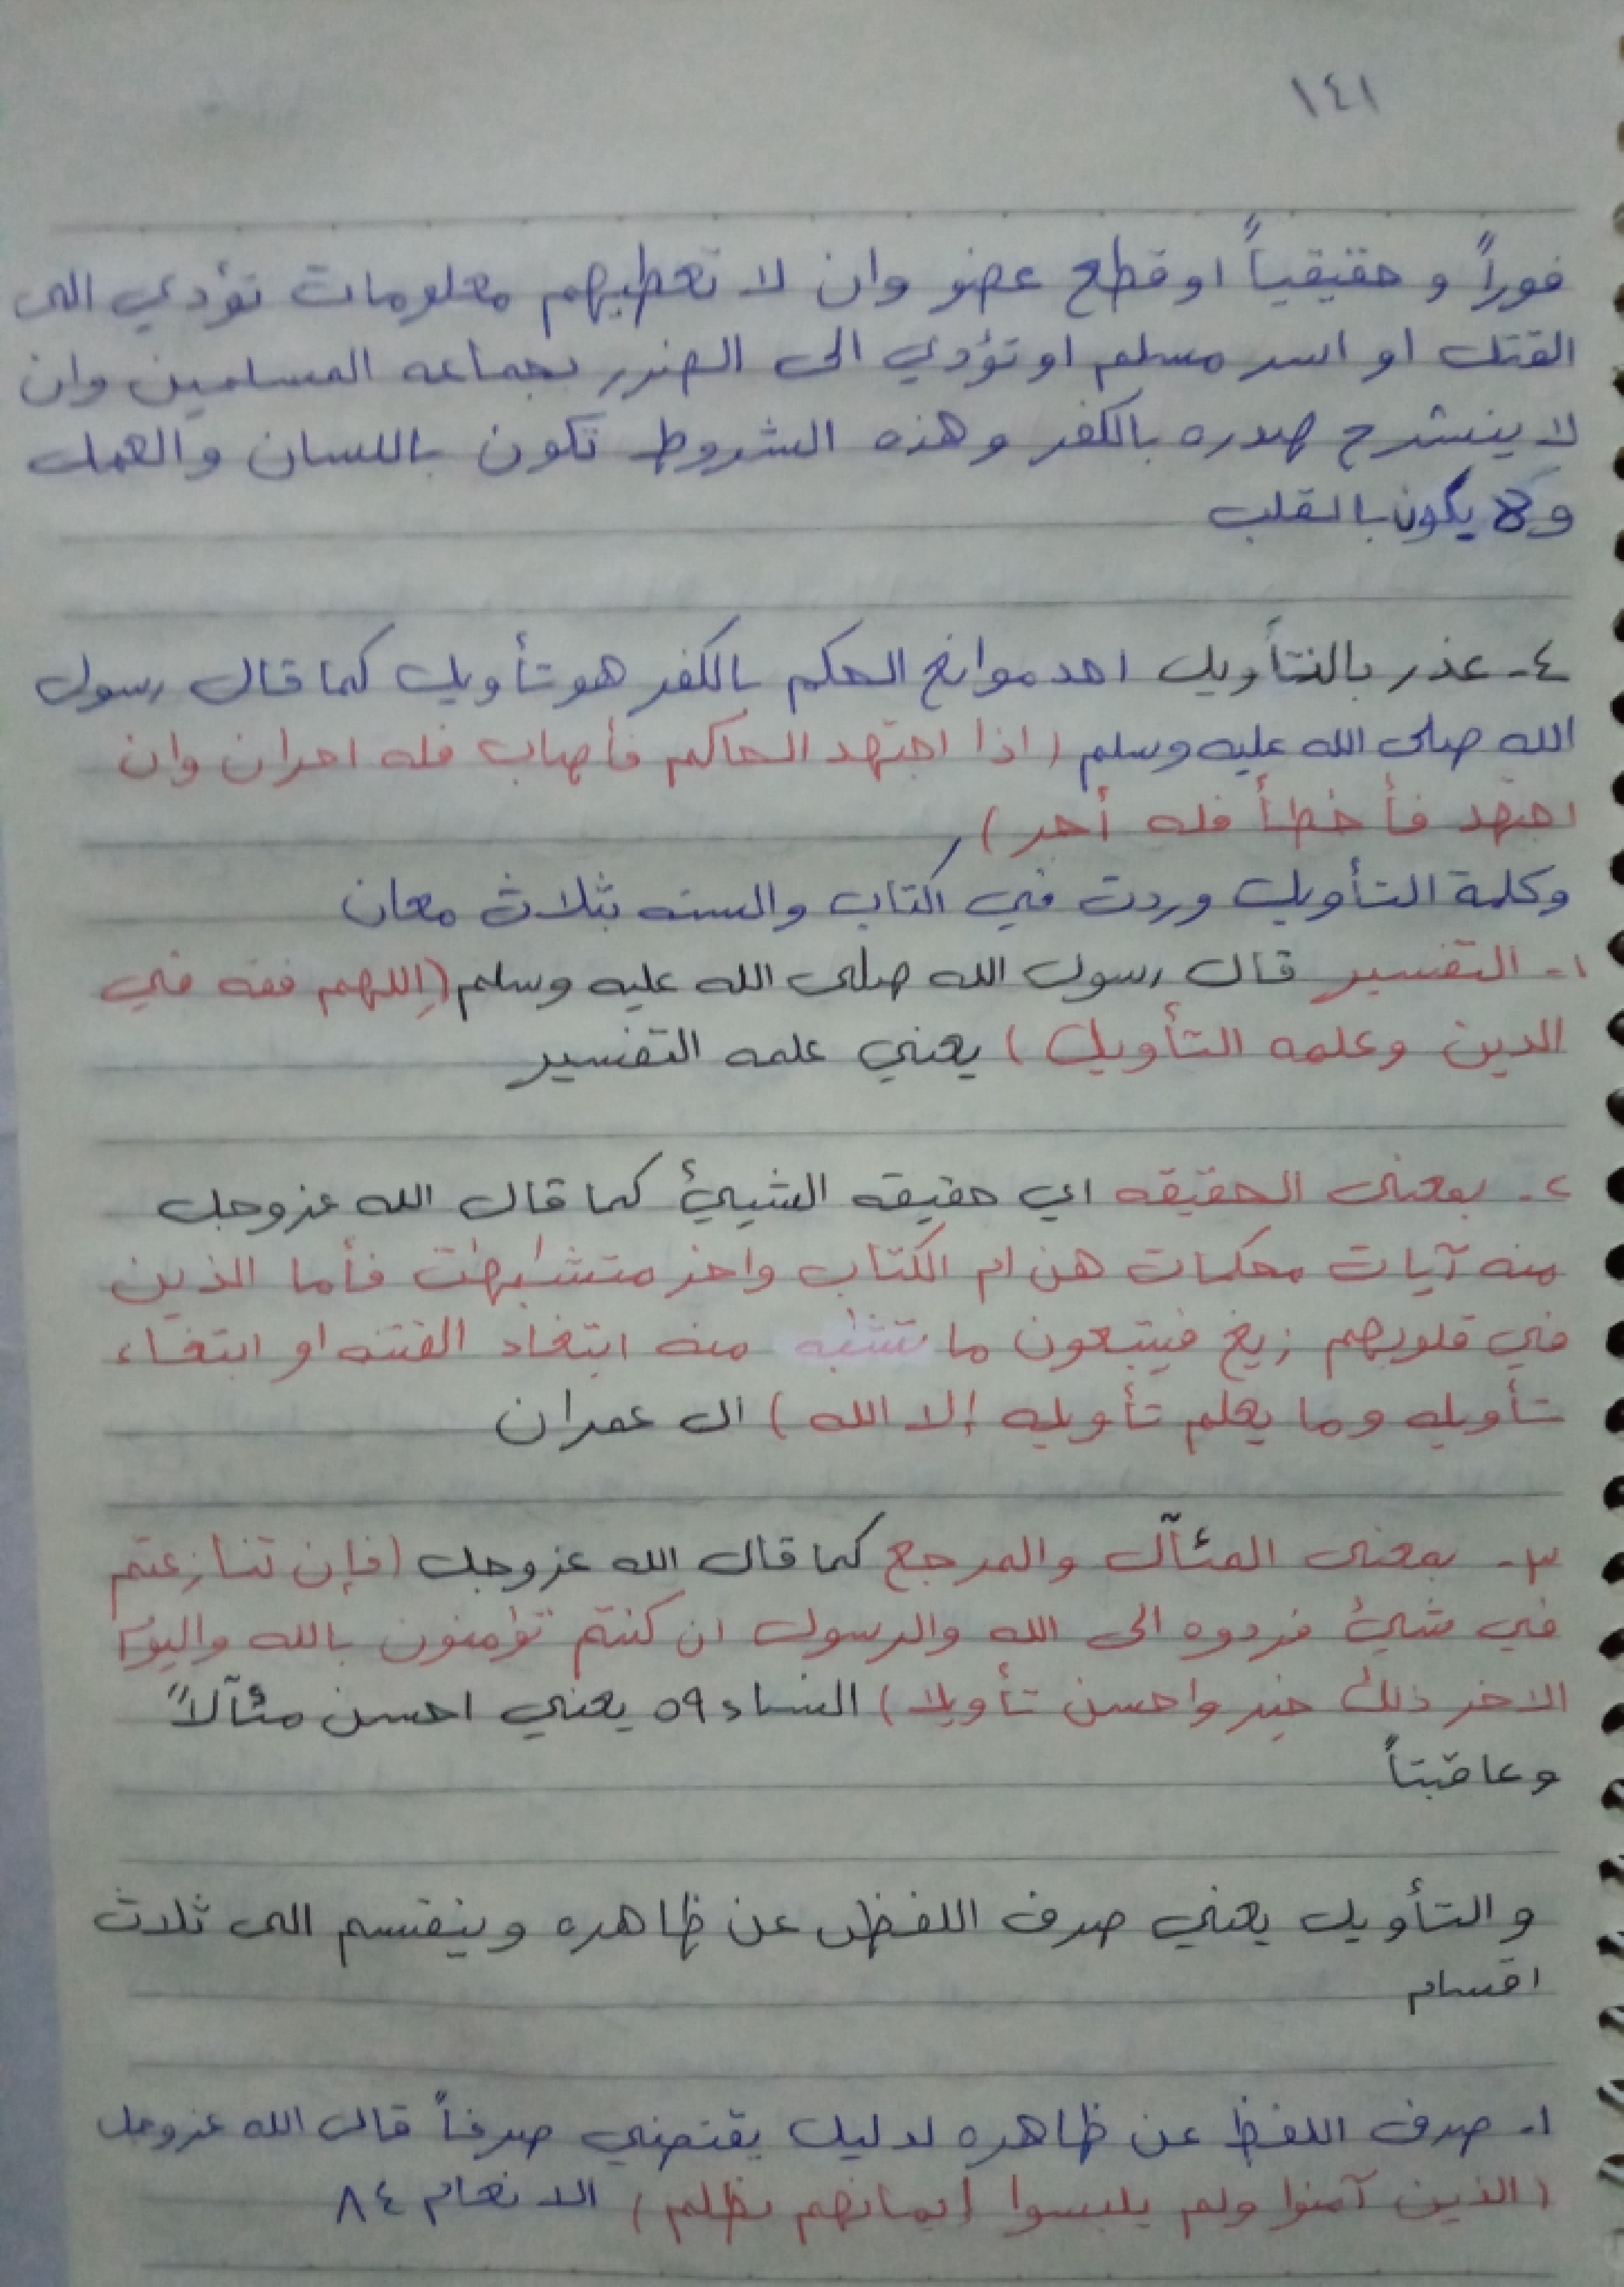 ١٤١
فوراً و حقيقياً او قطع عضو وان لا تعطيهم معلومات تؤدي الى
القتل او اسر مسلم او تؤدي الى الضرر بجماعه المسلمين وان
لا ينشرح صدره بالكفر وهذه الشروط تكون باللسان والعمل
و لا يكون بالقلب
٤- عذر بالتأويل احد موانع الحكم بالكفر هو تأويل كما قال رسول
الله صلى الله عليه وسلم (اذا اجتهد الحاكم فأصاب فله اجران وان
اجتهد فأخطأ فله أجر)
وكلمة التأويل وردت في الكتاب والسنه بثلاث معان
١- التفسير قال رسول الله صلى الله عليه وسلم (اللهم فقه في
الدين وعلمه التأويل) يعني علمه التفسير
٢- بمعنى الحقيقه اي حقيقه الشيئ كما قال الله عزوجل
منه آيات محكمات هن ام الكتاب واخر متشٰبهٰت فأما الذين
في قلوبهم زيغ فيتبعون ما تشٰبه منه ابتغاء الفتنه او ابتغاء
تأويله وما يعلم تأويله إلا الله) ال عمران
٣- بمعنى المئآل والمرجع كما قال الله عزوجل (فإن تنازعتم
في شيئ فردوه الى الله والرسول ان كنتم تؤمنون بالله واليوم
الاخر ذلك خير واحسن تأويلا) النساء ٥٩ يعني احسن مئآلاً
وعاقبتاً
والتأويل يعني صرف اللفظ عن ظاهره وينقسم الى ثلاث
اقسام
١- صرف اللفظ عن ظاهره لدليل يقتضي صرفاً قال الله عزوجل
(الذين آمنوا ولم يلبسوا إيمانهم بظلم) الانعام ٨٤